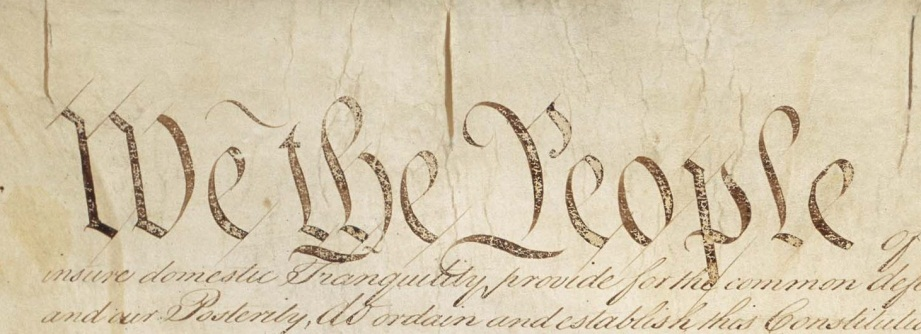 We the People of
insure domestic Tranquility, provide for the common def
and our Posterity, do ordain and establish this Constitut